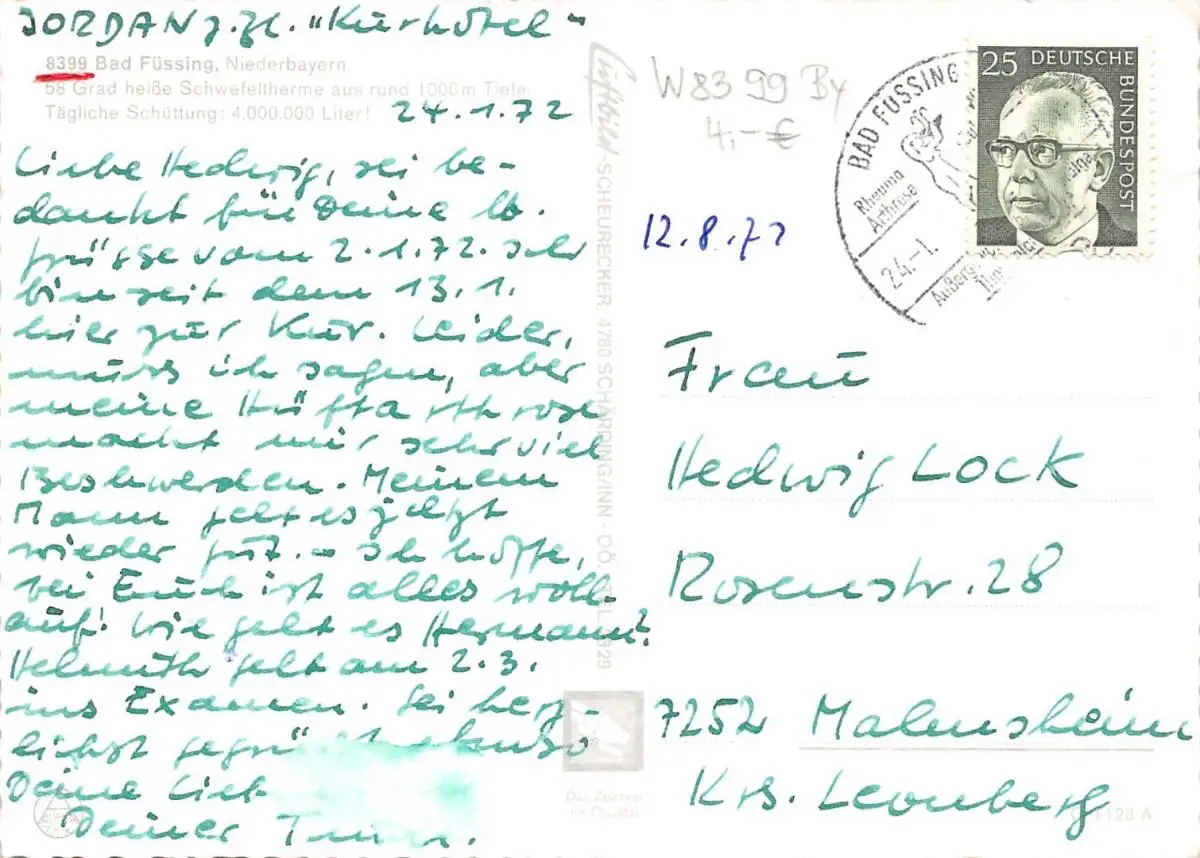 JORDAN z. Zt. "Kurhotel"
8399 Bad Füssing, Niederbayern
58 Grad heiße Schwefeltherme aus rund 1000m Tiefe.
Tägliche Schüttung: 4.000.000 Liter!
24.1.72
Liebe Hedwig, sei be-
dankt für Deine lb.
Grüsse vom 2.1.72. Ich
bin seit dem 13.1.
hier zur Kur. Leider,
muss ich sagen, aber
meine Hüftarthrose
macht mir sehr viel
Beschwerden. Meinem
Mann geht es jetzt
wieder gut. - Ich hoffe,
bei Euch ist alles wohl-
auf! Wie geht es Hermann?
Helmuth geht am 2.3.
ins Examen. Sei herz-
lichst gegrüßt
Deine
Deiner
Luftbild-SCHEURECKER, 4780 SCHÄRDING/INN - OÖ.
Das Zeichen
für Qualität
W8399 By
4.- €
12.8.72
BAD FÜSSING
Rheuma
Arthrose
24.-1.
25 DEUTSCHE
BUNDESPOST
Frau
Hedwig Lock
Rosenstr. 28
7252 Malmsheim
Krs. Leonberg
1128 A